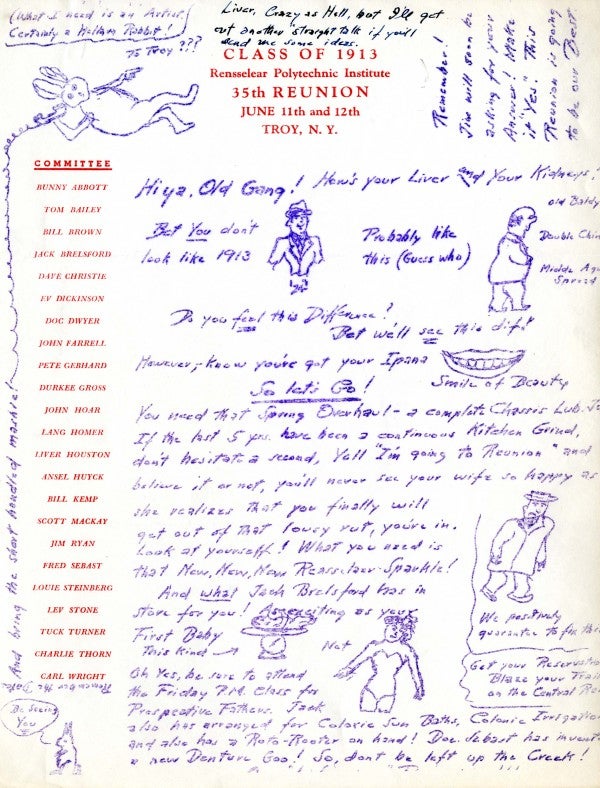 (What I need is an Artist,
Certainly a Helluva Rabbit!
To Troy???
Liver, Crazy as Hell, but I'll get
out another "straight talk if you'll
send me some ideas.
CLASS OF 1913
Rensselear Polytechnic Institute
35th REUNION
JUNE 11th and 12th
TROY, N. Y.
Remember!
Jim will soon be
asking for your
Answer! Make
it "Yes." This
Reunion is going
to be our Best.
COMMITTEE
BUNNY ABBOTT
TOM BAILEY
BILL BROWN
JACK BRELSFORD
DAVE CHRISTIE
EV DICKINSON
DOC DWYER
JOHN FARRELL
PETE GEBHARD
DURKEE GROSS
JOHN HOAR
LANG HOMER
LIVER HOUSTON
ANSEL HUYCK
BILL KEMP
SCOTT MACKAY
JIM RYAN
FRED SEBAST
LOUIE STEINBERG
LEV STONE
TUCK TURNER
CHARLIE THORN
CARL WRIGHT
Hiya, Old Gang! How's your Liver and Your Kidneys?
But You don't
look like 1913
Probably like
this (Guess who)
old Baldy
Double Chin
Middle Age
Spread
Do you feel this Difference!
But we'll see this dif."
However, I know you've got your Ipana
Smile of Beauty
So let's Go!
You need that Spring Overhaul - a complete Chassis Lub. Jo
If the last 5 yrs. have been a continuous Kitchen Grind,
don't hesitate a second, Yell "I'm going to Reunion" and
believe it or not, you'll never see your wife so happy as
she realizes that you finally will
get out of that lousy rut, you're in.
Look at yourself! What you need is
that New, New, New Rensselaer Sparkle!
And what Jack Brelsford has in
store for you! As exciting as your
First Baby
This Kind
Not
We positively
guarantee to fix this
Get your Reservation
Blaze your Trail
on the Central Ro
Oh Yes, be sure to attend
the Friday P.M. Class for
Prospective Fathers. Jack
also has arranged for Colonie Sun Baths, Colonic Irrigation
and also has a Roto-Rooter on hand! Doc. Sebast has invente
a new Denture Goo! So, don't be left up the Creek!
And bring the short handled mashie!
Remember the Date
Be Seeing
You